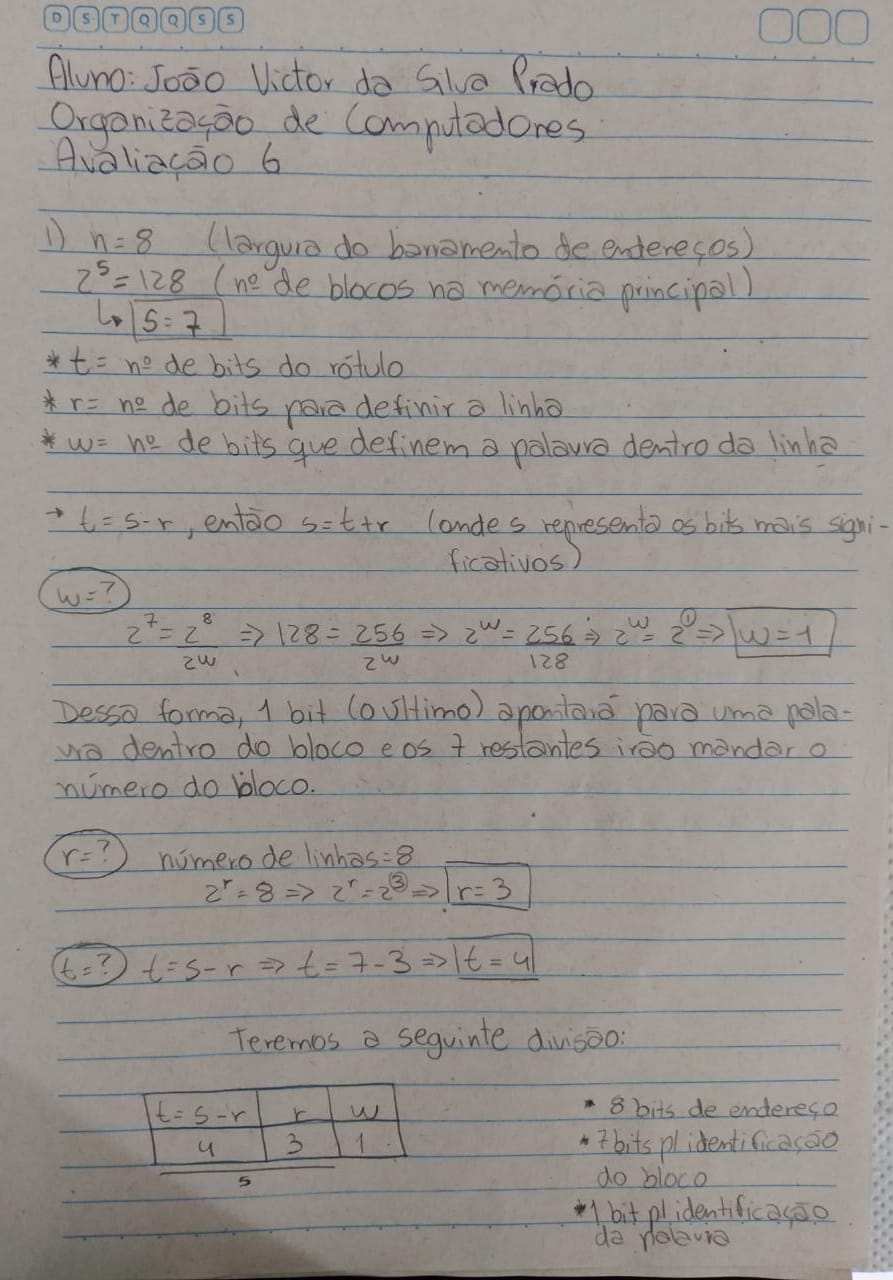 D S T Q Q S S
Aluno: João Victor da Silva Prado
Organização de Computadores
Avaliação 6
1) n=8 (largura do barramento de endereços)
2^s=128 (nº de blocos na memória principal)
↳ s=7
* t= nº de bits do rótulo
* r= nº de bits para definir a linha
* w= nº de bits que definem a palavra dentro da linha
→ t=s-r, então s=t+r (onde s representa os bits mais signi-
ficativos)
w=?
2^7=2^8/2^w => 128=256/2^w => 2^w=256/128 => 2^w=2^1 => w=1
Dessa forma, 1 bit (o último) apontará para uma pala-
vra dentro do bloco e os 7 restantes irão mandar o
número do bloco.
r=? número de linhas=8
2^r=8 => 2^r=2^3 => r=3
t=? t=s-r => t=7-3 => t=4
Teremos a seguinte divisão:
t=s-r r w
4 3 1
s
* 8 bits de endereço
* 7 bits p/ identificação
do bloco
* 1 bit p/ identificação
da palavra